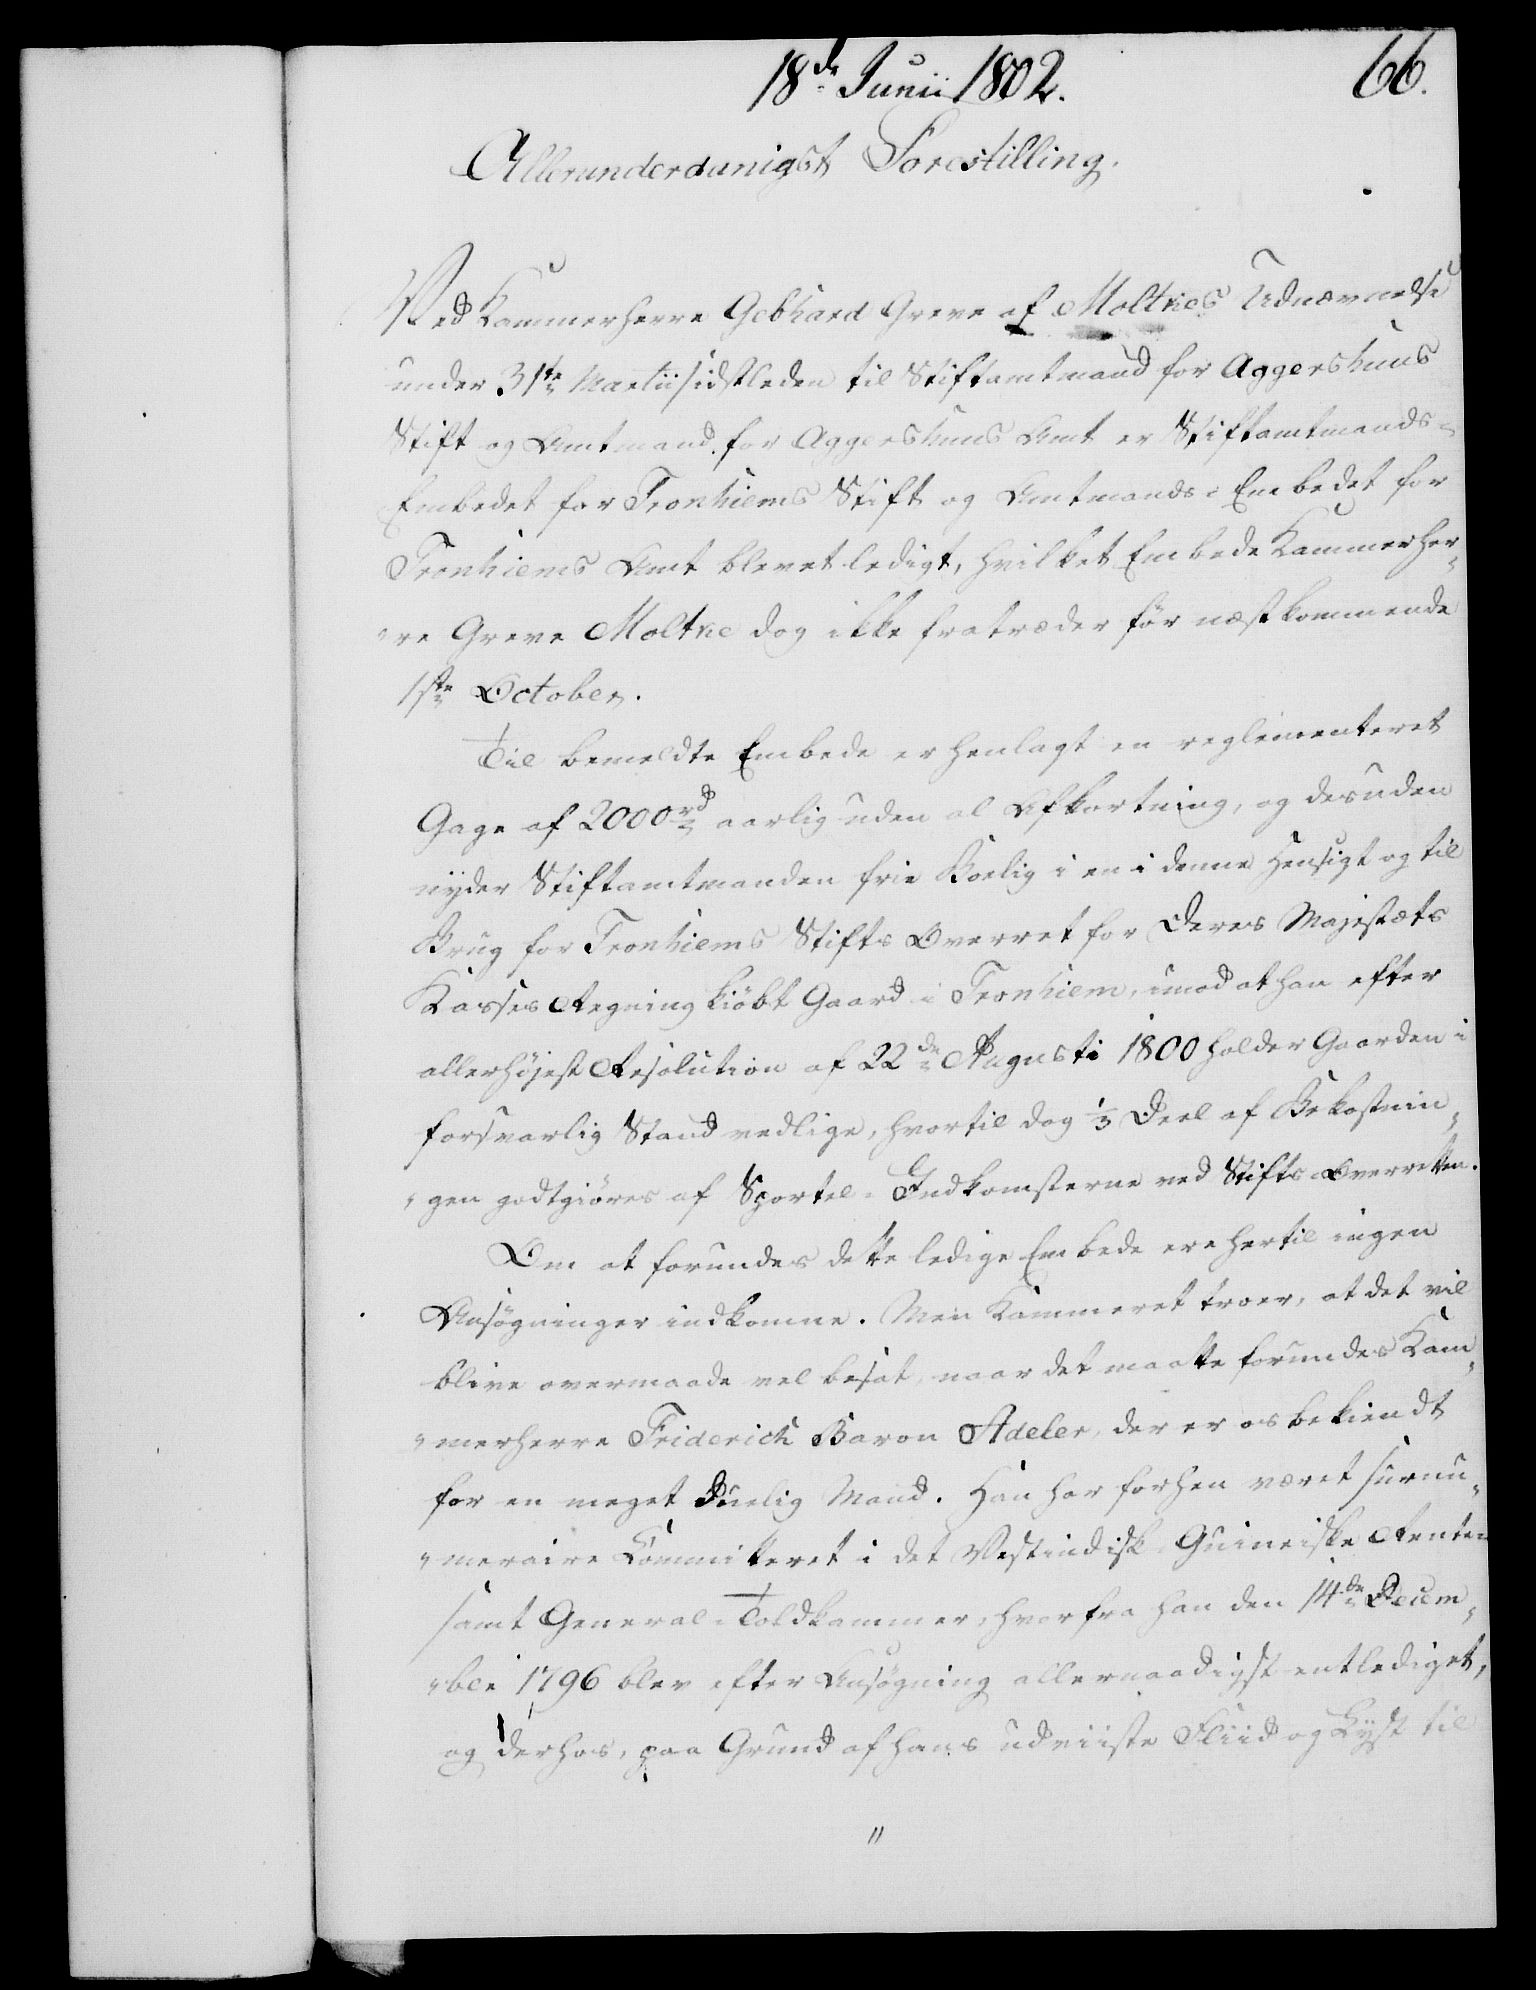 18de Junii 1802.
66.
Allerunderdanigst Forestilling.
Ved Kammerherre Gebhard Greve af Moltkes Udnævnelse
under 31te Martii sidstleden til Stiftamtmand for Aggershuus
Stift og Amtmand for Aggershuus Amt er Stiftamtmands-
Embedet for Tronhiems Stift og Amtmands-Embedet for
Tronhiems Amt blevet ledigt, hvilket Embede Kammerher-
-re Greve Moltke dog ikke fratræder før næstkommende
1ste October.
Til bemeldte Embede er henlagt en reglementeret
Gage af 2000 rd aarlig uden al Afkortning, og desuden
nyder Stiftamtmanden frie Boelig i en i denne Hensigt og til
Brug for Tronhiems Stifts Overret for Deres Majestæts
Kasses Regning kiøbt Gaard i Tronhiem, imod at han efter
allerhøjest Resolution af 22de Augusti 1800 holder Gaarden i
forsvarlig Stand vedlige, hvortil dog 1/3 Deel af Bekostnin-
-gen godtgiøres af Sportel-Indkomsterne ved Stifts-Overretten.
Om at forundes dette ledige Embede ere hertil ingen
Ansøgninger indkomne. Men Kammeret troer, at det vil
blive overmaade vel besat, naar det maatte forundes Kam-
-merherre Friderich Baron Adeler, der er os bekiendt
for en meget duelig Mand. Han har forhen været surnu-
-meraire Committeret i det Vestindisk-Guineiske Rente-
samt General-Toldkammer, hvorfra han den 14de Decem-
-ber 1796 blev efter Ansøgning allernaadigst entlediget,
og derhos, paa Grund af hans udviiste Fliid og Lyst til
"